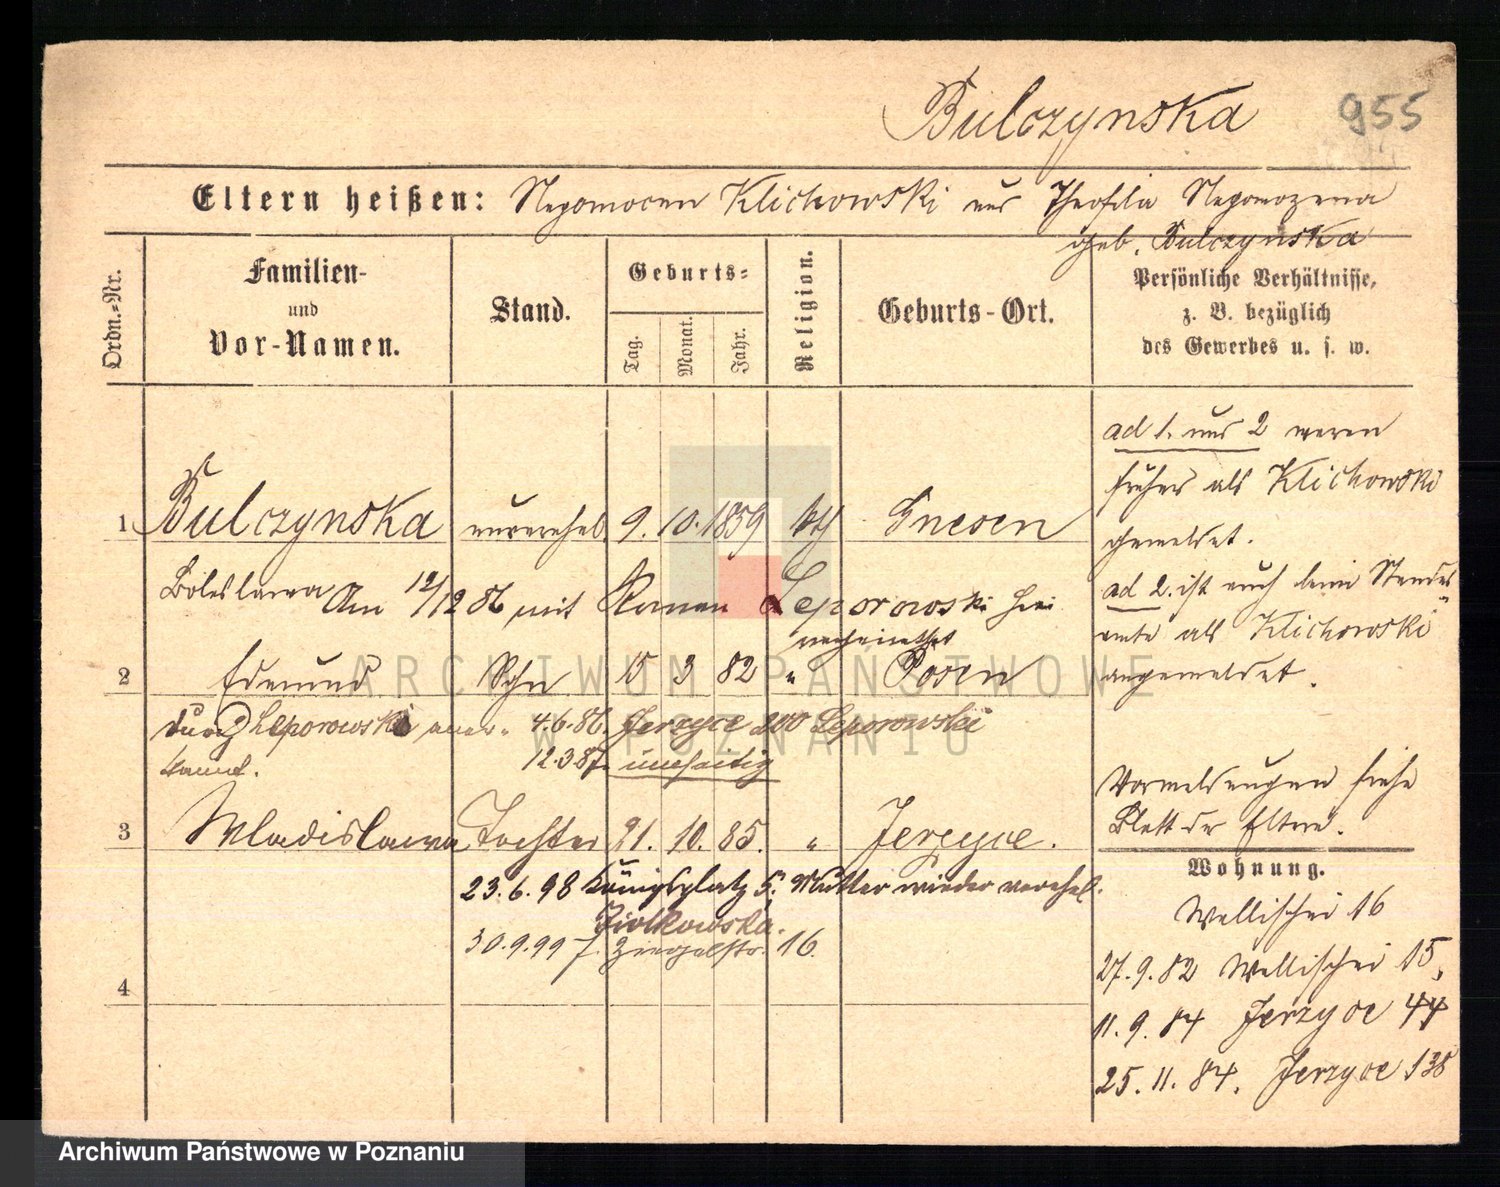 Bulczynska 955
Eltern heißen: Nepomocen Klichowski und Theofila Nepomozena
geb. Bulczynska
Ordn.-Nr.
Familien-
und
Vor-Namen.
Stand.
Geburts-
Tag. Monat. Jahr.
Religion.
Geburts-Ort.
Persönliche Verhältnisse,
z. B. bezüglich
des Gewerbes u. s. w.
1 Bulczynska unverehel. 9. 10. 1859 kth Gnesen
Boleslawa Am 12/12 86 mit Roman Leporowski hier
verheirathet
2 Edmund Sohn 15 3 82 " Posen
durch Leporowski aner-
kannt.
4.6.86. Jerzyce 200 Leporowski
12.3.87.
3 Wladislawa Tochter 21. 10. 85. " Jerzyce.
23.6.98 Königsplatz 5, Mutter wieder verehel.
Ziolkowska.
30.9.99 Ziegelstr. 16.
4
ad 1. und 2 waren
früher als Klichowski
gemeldet.
ad 2. ist auch beim Standes-
amte als Klichowski
angemeldet.
Vormeldungen siehe
Blatt der Eltern.
Wohnung.
Wallischei 16
27.9.82 Wallischei 15,
11.9.84 Jerzyce 44
25.11.84. Jerzyce 138
ARCHIWUM PAŃSTWOWE
W POZNANIU
Archiwum Państwowe w Poznaniu